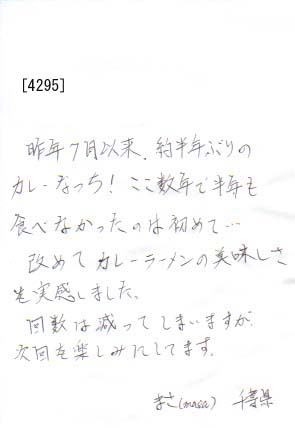 [4295]
昨年7月以来、約半年ぶりの
カレーなっち!ここ数年で半年も
食べなかったのは初めて…
改めてカレーラーメンの美味しさ
を実感しました。
回数は減ってしまいますが
次回を楽しみにしてます。
まさ(masa) 千葉県